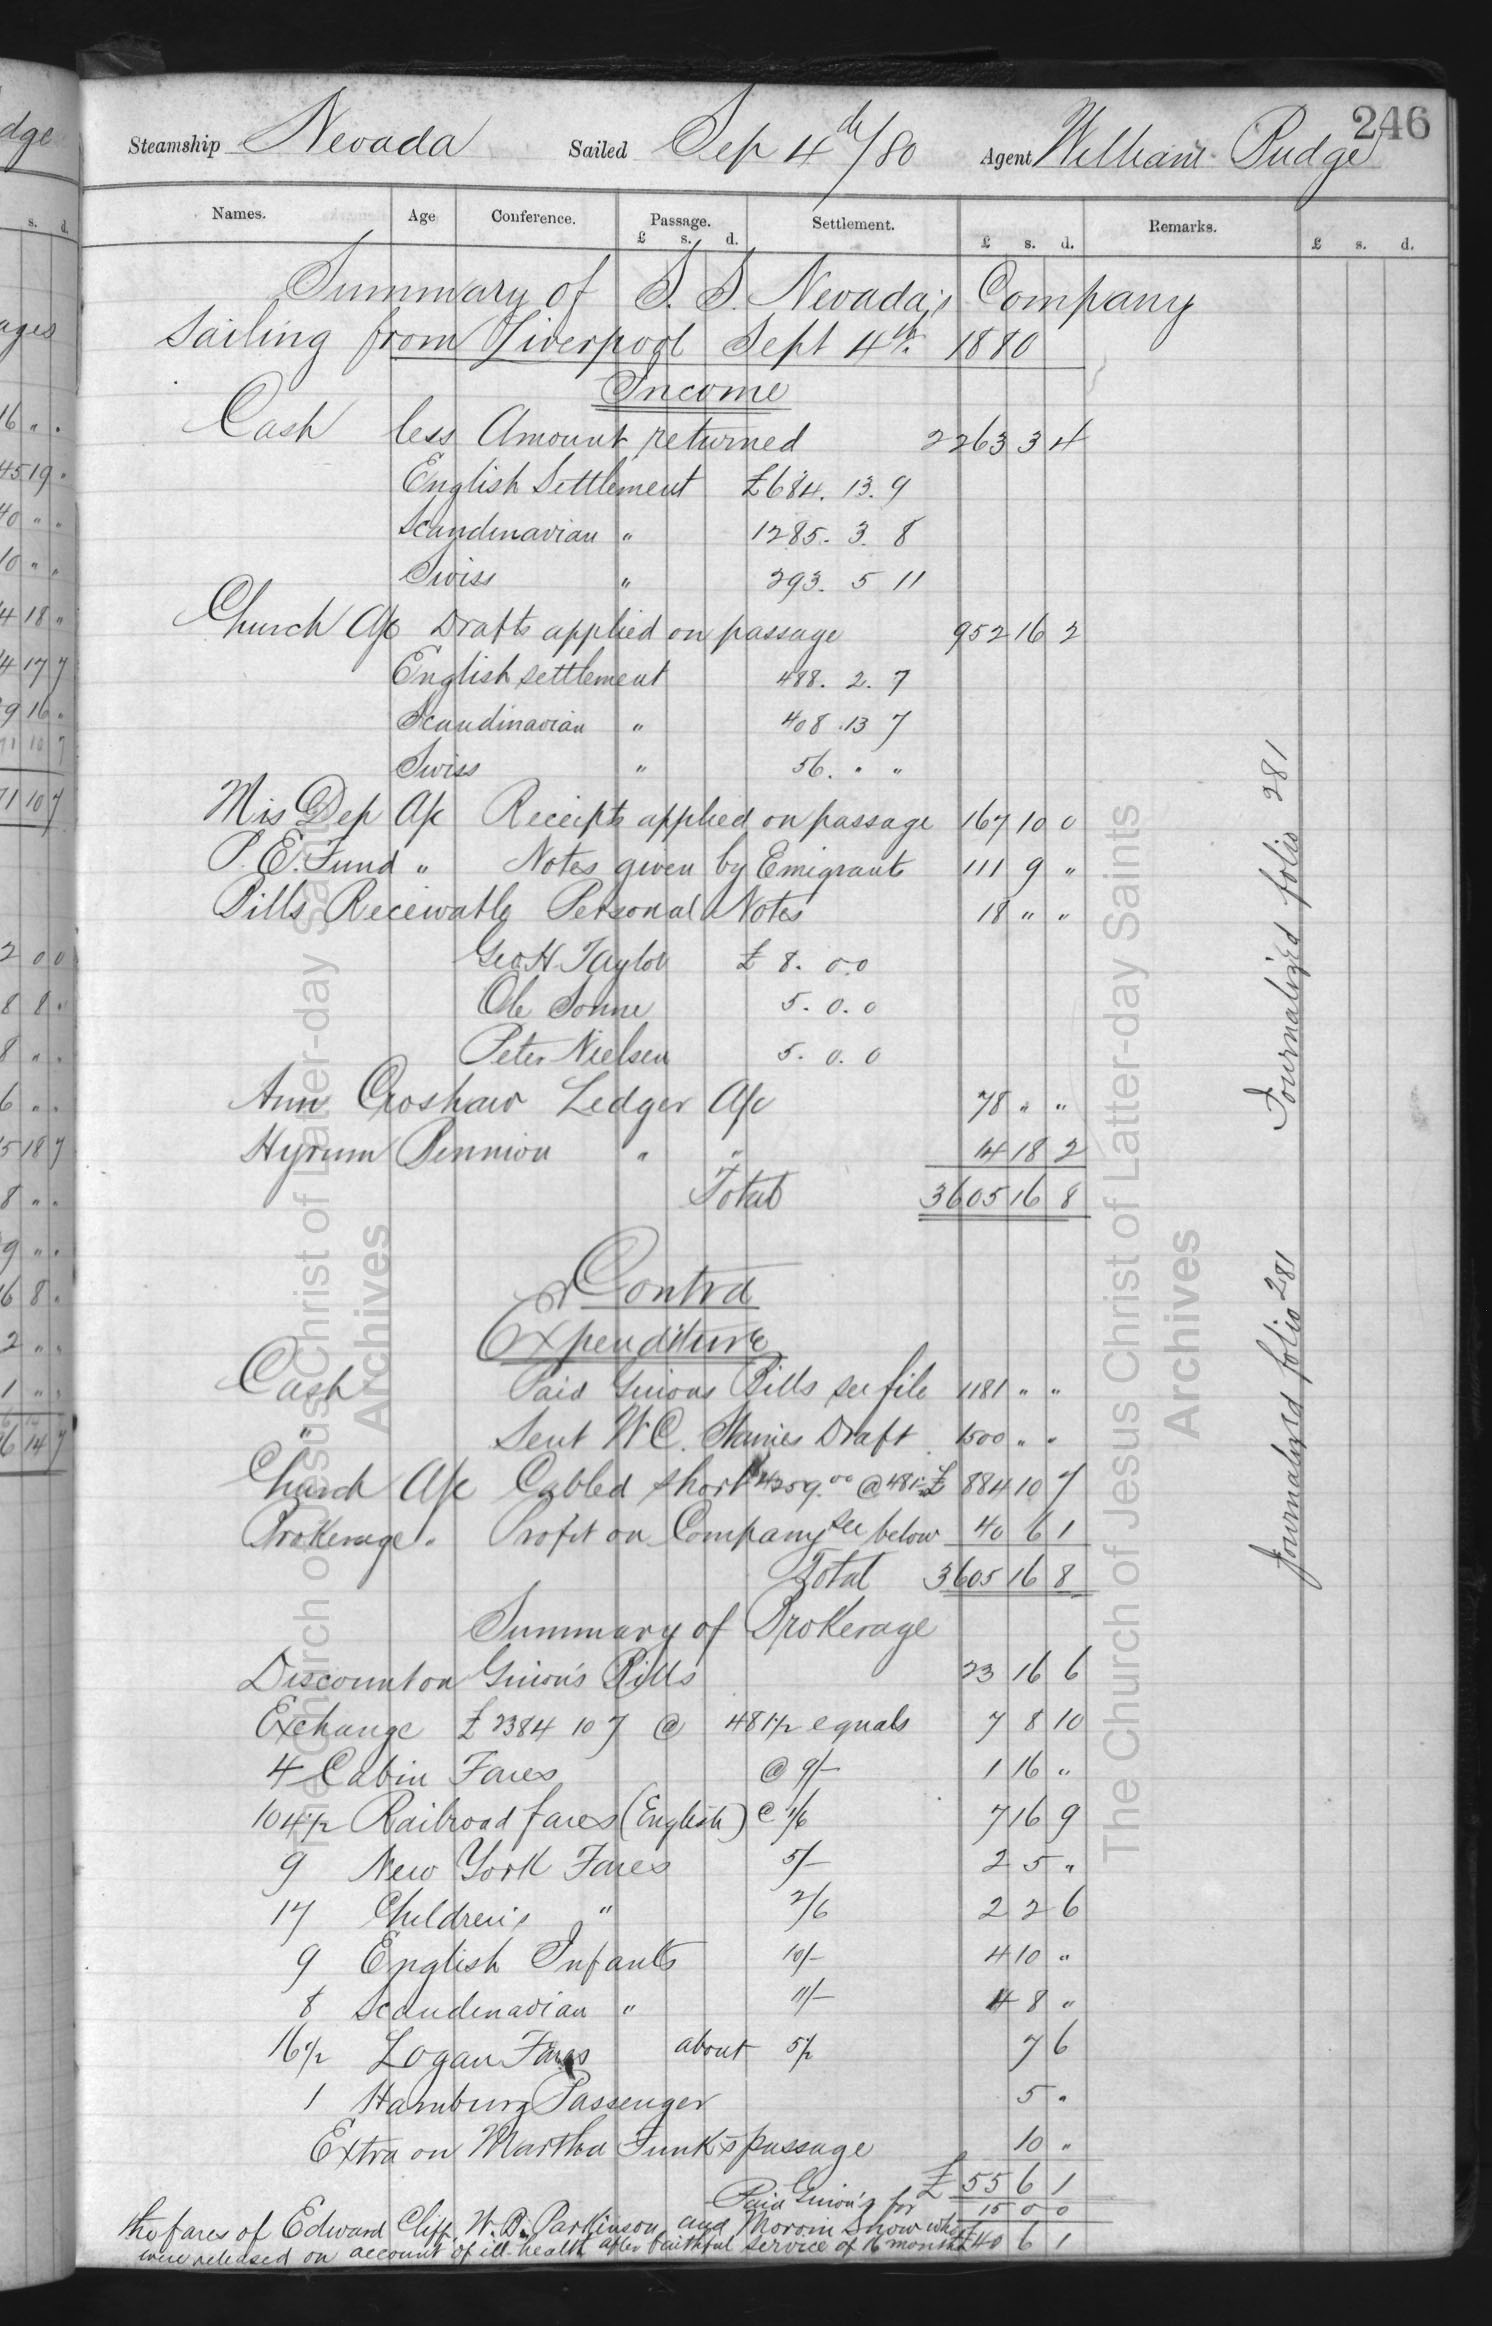 246
Steamship Nevada Sailed Sep 4th/80 Agent William Budge
Names. Age Conference. Passage. Settlement. Remarks.
£ s. d. £ s. d. £ s. d.
Summary of S. S. Nevada's Company
Sailing from Liverpool Sept 4th. 1880
Income
Cash less Amount returned 2263 3 4
English Settlement £684. 13. 9
Scandinavian " 1285. 3. 8
Swiss " 293. 5 11
Church A/c Drafts applied on passage 952 16 2
English settlement 488. 2. 7
Scandinavian " 408. 13 7
Swiss " 56. " "
Mis Dep A/c Receipts applied on passage 167 10 0
P. E. Fund " Notes given by Emigrants 111 9 "
Bills Receivable Personal Notes 18 " "
Geo H. Taylor £ 8. 0.0
Ole Sonne 5. 0. 0
Peter Nielsen 5. 0. 0
Ann Croshaw Ledger A/c 78 " "
Hyrum Bennion " " 14 18 2
Total 3605 16 8
Contra
Expenditure
Cash Paid Guions Bills see file 1181 " "
" Sent W. C. Staines Draft 1500 " "
Church A/c Cabled short $4259.00 @ 481½ £ 884 10 7
Brokerage " Profit on Company see below 40 6 1
Total 3605 16 8
Summary of Brokerage
Discount on Guion's Bills 23 16 6
Exchange £ 2384 10 7 @ 481½ equals 7 8 10
4 Cabin Fares @ 9/- 1 16 "
104½ Railroad fares (English) @ 1/6 7 16 9
9 New York Fares 5/- 2 5 "
17 Children's " 2/6 2 2 6
9 English Infants 10/- 4 10 "
8 Scandinavian " 11/- 4 8 "
16½ Logan Fares about 5½ 7 6
1 Hamburg Passenger 5 "
Extra on Martha Funk's passage 10 "
£ 55 6 1
Paid Guion's for 15 0 0
the fares of Edward Cliff, W. B. Parkinson and Moroni Snow who
were released on account of ill-health after faithful service of 16 months £40 6 1
Journalized folio 281
Journalized folio 281
The Church of Jesus Christ of Latter-day Saints
Archives
The Church of Jesus Christ of Latter-day Saints
Archives